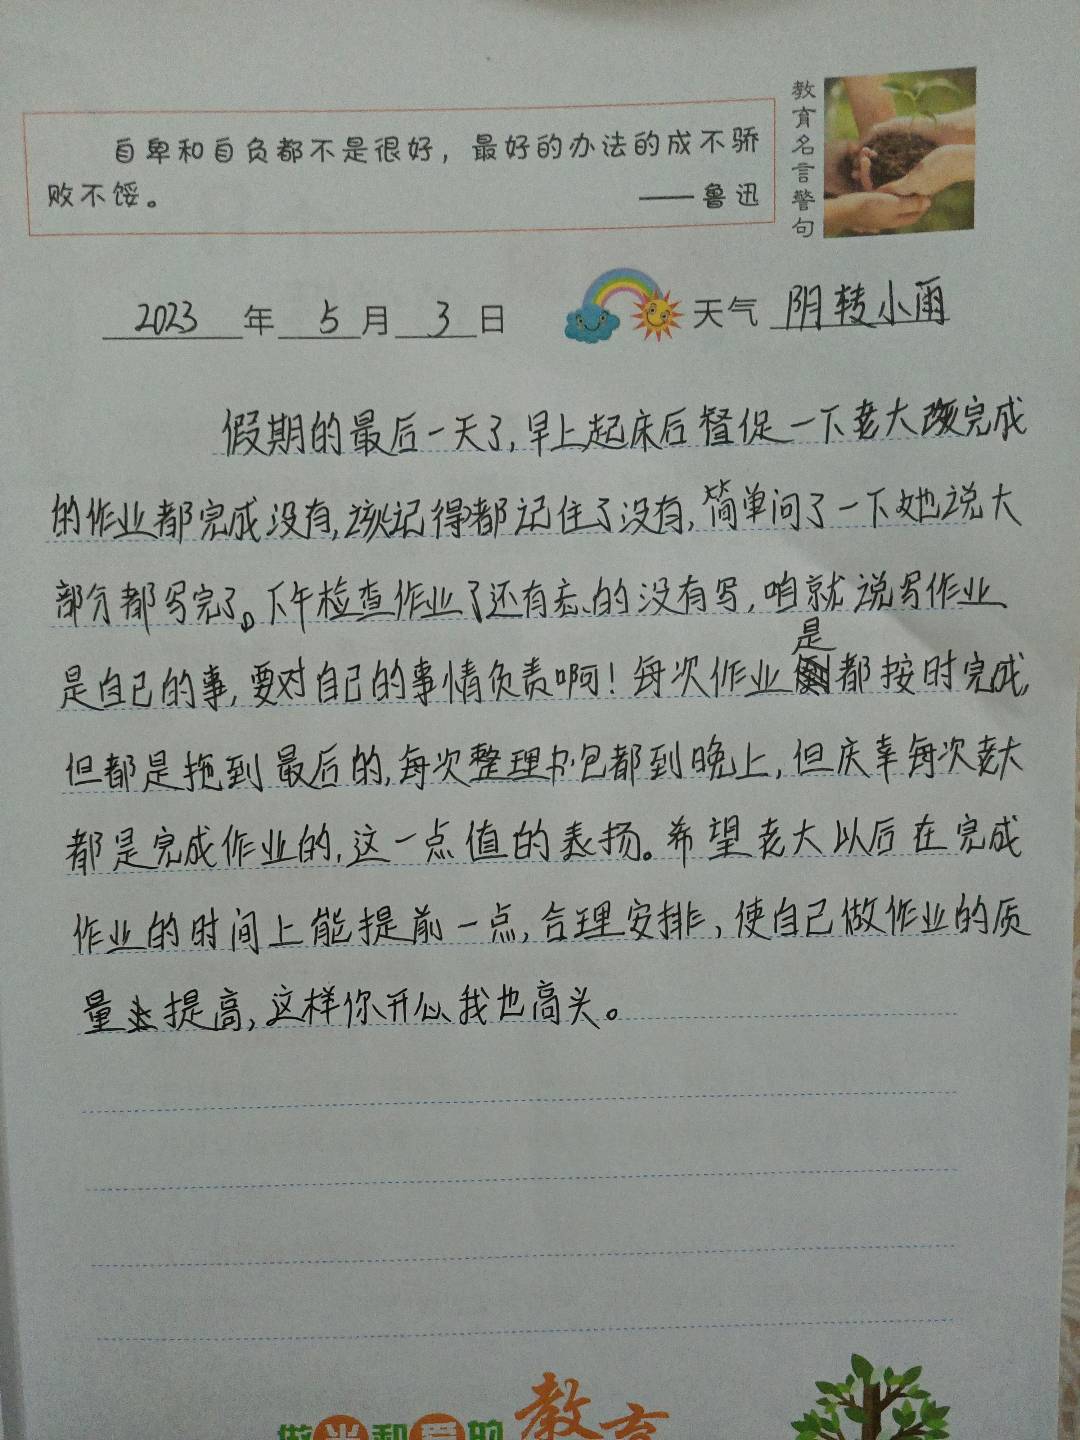 自卑和自负都不是很好，最好的办法的成不骄
败不馁。
——鲁迅
教育名言警句
2023年5月3日 天气 阴转小雨
假期的最后一天了,早上起床后督促一下老大该完成
的作业都完成没有,该记得都记住了没有,简单问了一下她说大
部分都写完了。下午检查作业了还有忘的没有写,咱就说写作业
是自己的事,要对自己的事情负责啊!每次作业是都按时完成,
但都是拖到最后的,每次整理书包都到晚上,但庆幸每次老大
都是完成作业的,这一点值的表扬。希望老大以后在完成
作业的时间上能提前一点,合理安排,使自己做作业的质
量提高,这样你开心我也高头。
做光和爱的教育